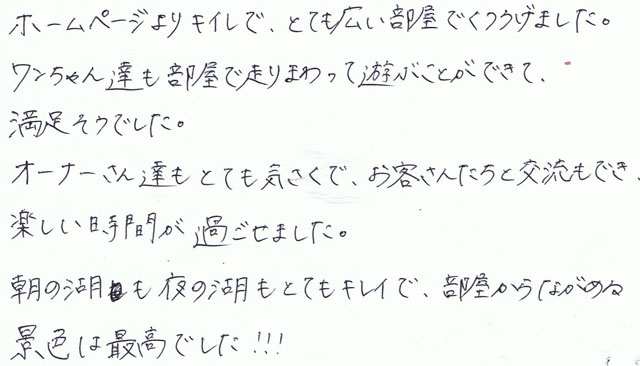 ホームページよりキイレで、とても広い部屋でくつろげました。
ワンちゃん達も部屋で走りまわって遊ぶことができて、
満足そうでした。
オーナーさん達もとても気さくで、お客さんたちと交流もでき、
楽しい時間が過ごせました。
朝の湖も夜の湖もとてもキレイで、部屋からながめる
景色は最高でした!!!